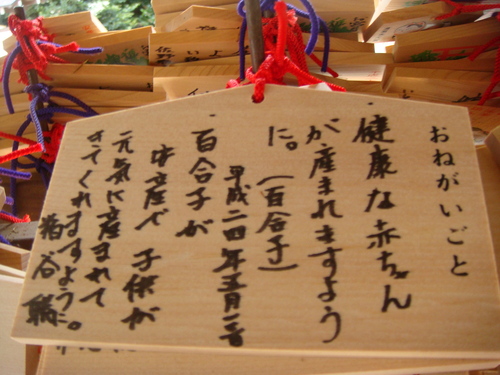 おねがいごと
健康な赤ちゃん
が産まれますよう
に。(百合子)
平成二四年五月一日
百合子が
安産で子供が
元気に産まれて
きてくれますように。